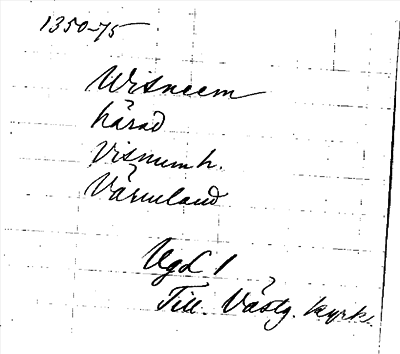 1350-75
Wisneem
härad
Visnum h.
Värmland
VgL 1
Till. Västg. kyrk.